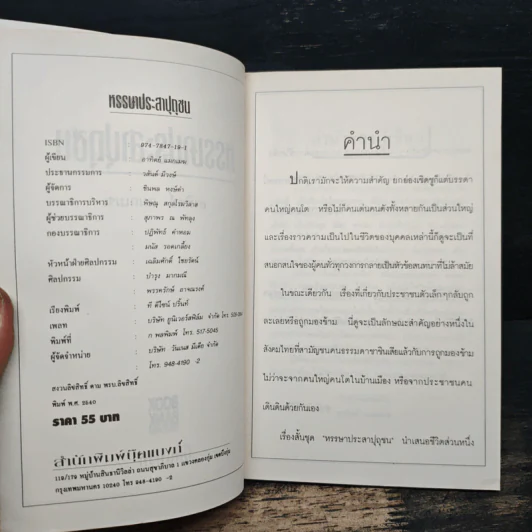 หรรษาประสาปุถุชน
ISBN : 974-7847-19-1
ผู้เขียน :
ประธานกรรมการ :
ผู้จัดการ :
บรรณาธิการบริหาร :
ผู้ช่วยบรรณาธิการ : สุภาพร ณ พัทลุง
กองบรรณาธิการ :
มนัส
หัวหน้าฝ่ายศิลปกรรม : เฉลิมศักดิ์ ไชยรัตน์
ศิลปกรรม : บำรุง มากมณี
พรวรักษ์ อาจณรงค์
เรียงพิมพ์ : ที ดีไซน์ ปริ้นท์
เพลท : บริษัท ยูนิเวอร์สฟิล์ม จำกัด โทร
พิมพ์ที่ : ก พลพิมพ์ โทร. 517-5045
ผู้จัดจำหน่าย : บริษัท วันเนส มีเดีย จำกัด
: โทร. 948-4190 -2
สงวนลิขสิทธิ์ ตาม พรบ.ลิขสิทธิ์
พิมพ์ พ.ศ. 2540
ราคา 55 บาท
สำนักพิมพ์บุ๊คแบงก์
119/179 หมู่บ้านสินธานีวิลล่า ถนนสุขาภิบาล 1 แขวงคลองกุ่ม เขตบึงกุ่ม
กรุงเทพมหานคร 10240 โทร 948-4190 -2
คำนำ
ปกติเรามักจะให้ความสำคัญ ยกย่องเชิดชูก็แต่บรรดา
คนใหญ่คนโต หรือไม่ก็คนเด่นคนดังทั้งหลายกันเป็นส่วนใหญ่
และเรื่องราวความเป็นไปในชีวิตของบุคคลเหล่านี้ก็ดูจะเป็นที่
สนอกสนใจของผู้คนทั่วทุกวงการกลายเป็นหัวข้อสนทนาที่ไม่ล้าสมัย
ในขณะเดียวกัน เรื่องที่เกี่ยวกับประชาชนตัวเล็กๆกลับถูก
ละเลยหรือถูกมองข้าม นี่ดูจะเป็นลักษณะสำคัญอย่างหนึ่งใน
สังคมไทยที่สามัญชนคนธรรมดาชาชินเสียแล้วกับการถูกมองข้าม
ไม่ว่าจะจากคนใหญ่คนโตในบ้านเมือง หรือจากประชาชนคน
เดินดินด้วยกันเอง
เรื่องสั้นชุด "หรรษาประสาปุถุชน" นำเสนอชีวิตส่วนหนึ่ง